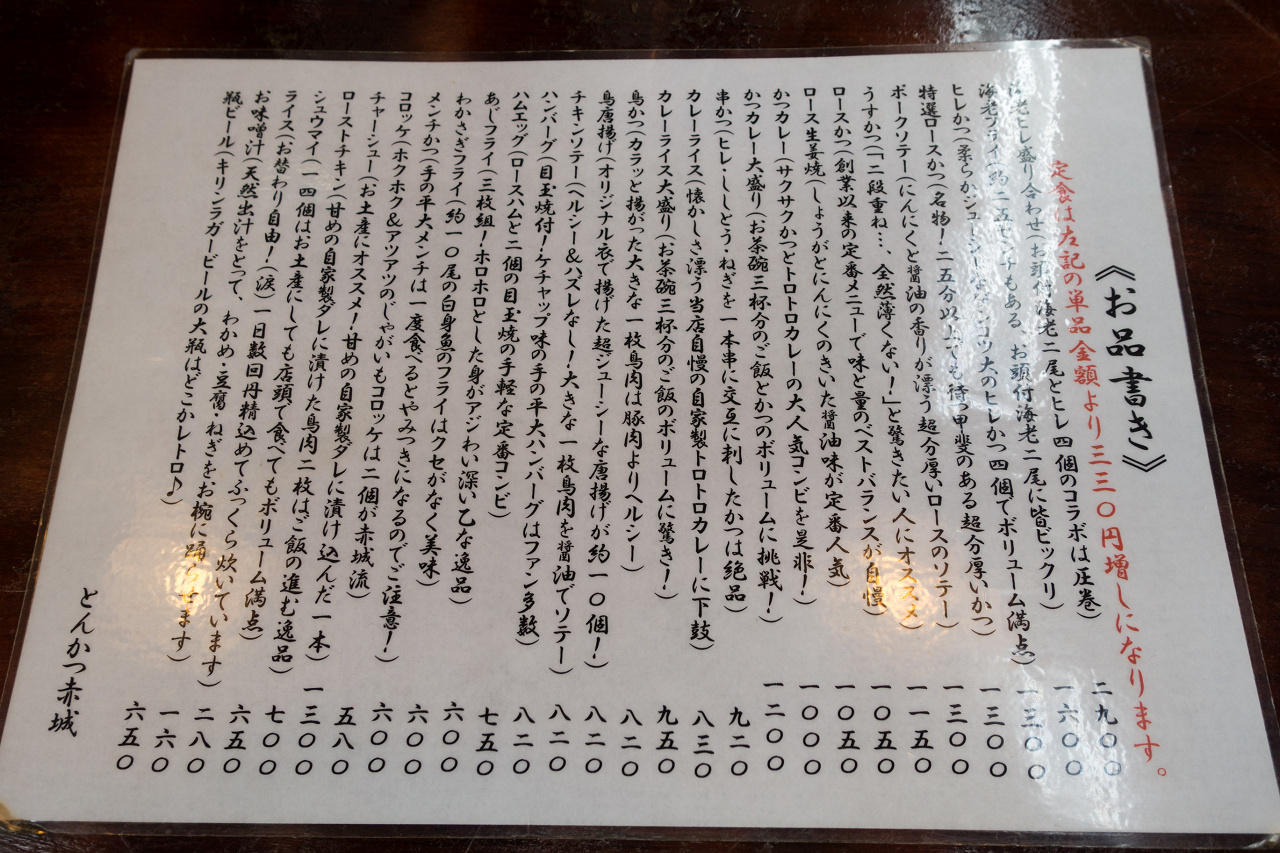 《お品書き》
定食は左記の単品金額より三三〇円増しになります。
海老ヒレ盛り合わせ(お頭付海老二尾とヒレ四個のコラボは圧巻) 二九〇〇
海老フライ(約二五センチもある、お頭付海老二尾に皆ビックリ) 一六〇〇
ヒレかつ(柔らかジューシーなゲンコツ大のヒレかつ四個でボリューム満点) 一三〇〇
特選ロースかつ(名物!二五分以上でも待つ甲斐のある超分厚いかつ) 一三〇〇
ポークソテー(にんにくと醤油の香りが漂う超分厚いロースのソテー) 一三〇〇
うすかつ(「二段重ね…、全然薄くない!」と驚きたい人にオススメ) 一一五〇
ロースかつ(創業以来の定番メニューで味と量のベストバランスが自慢) 一〇五〇
ロース生姜焼(しょうがとにんにくのきいた醤油味が定番人気) 一〇五〇
かつカレー(サクサクかつとトロトロカレーの大人気コンビを是非!) 一〇〇〇
かつカレー大盛り(お茶碗三杯分のご飯とかつのボリュームに挑戦!) 一二〇〇
串かつ(ヒレ・ししとう・ねぎを一本串に交互に刺したかつは絶品) 九二〇
カレーライス(懐かしさ漂う当店自慢の自家製トロトロカレーに下鼓) 八三〇
カレーライス大盛り(お茶碗三杯分のご飯のボリュームに驚き!) 九五〇
鳥かつ(カラッと揚がった大きな一枚鳥肉は豚肉よりヘルシー) 八二〇
鳥唐揚げ(オリジナル衣で揚げた超ジューシーな唐揚げが約一〇個!) 八二〇
チキンソテー(ヘルシー&ハズレなし!大きな一枚鳥肉を醤油でソテー) 八二〇
ハンバーグ(目玉焼付!ケチャップ味の手の平大ハンバーグはファン多数) 八二〇
ハムエッグ(ロースハムと二個の目玉焼の手軽な定番コンビ) 七五〇
あじフライ(三枚組!ホロホロとした身がアジわい深い乙な逸品) 六〇〇
わかさぎフライ(約一〇尾の白身魚のフライはクセがなく美味) 六〇〇
メンチかつ(手の平大メンチは一度食べるとやみつきになるのでご注意!) 六〇〇
コロッケ(ホクホク&アツアツのじゃがいもコロッケは二個が赤城流) 五八〇
チャーシュー(お土産にオススメ!甘めの自家製ダレに漬け込んだ一本) 一三〇〇
ローストチキン(甘めの自家製ダレに漬けた鳥肉二枚はご飯の進む逸品) 七〇〇
シュウマイ(一四個はお土産にしても店頭で食べてもボリューム満点) 六五〇
ライス(お替わり自由!(涙)一日数回丹精込めてふっくら炊いています) 二八〇
お味噌汁(天然出汁をとって、わかめ・豆腐・ねぎをお椀に踊らせます) 一六〇
瓶ビール(キリンラガービールの大瓶はどこかレトロ♪) 六五〇
とんかつ赤城